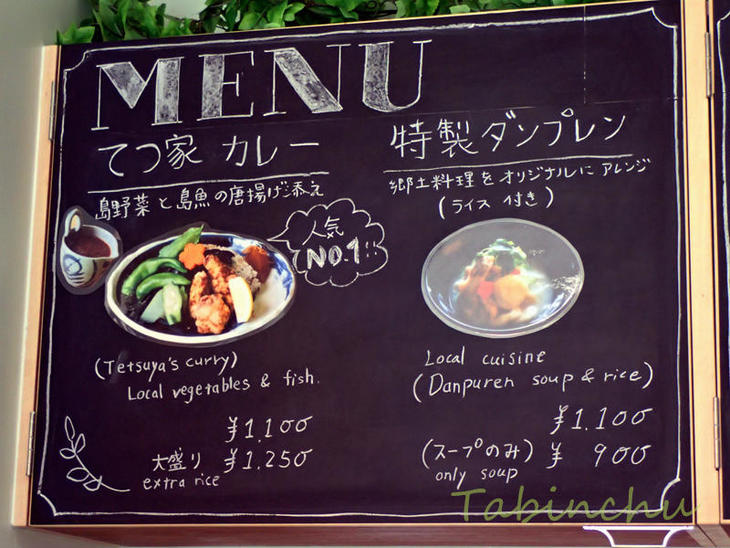 MENU
てつ家 カレー
島野菜と島魚の唐揚げ添え
人気
NO.1!!
(Tetsuya's curry)
Local vegetables & fish.
¥1.100
大盛り ¥1.250
extra rice
特製ダンプレン
郷土料理をオリジナルに アレンジ
(ライス 付き)
Local cuisine
(Danpuren soup & rice)
¥1.100
(スープのみ) ¥ 900
only soup
Tabinchu